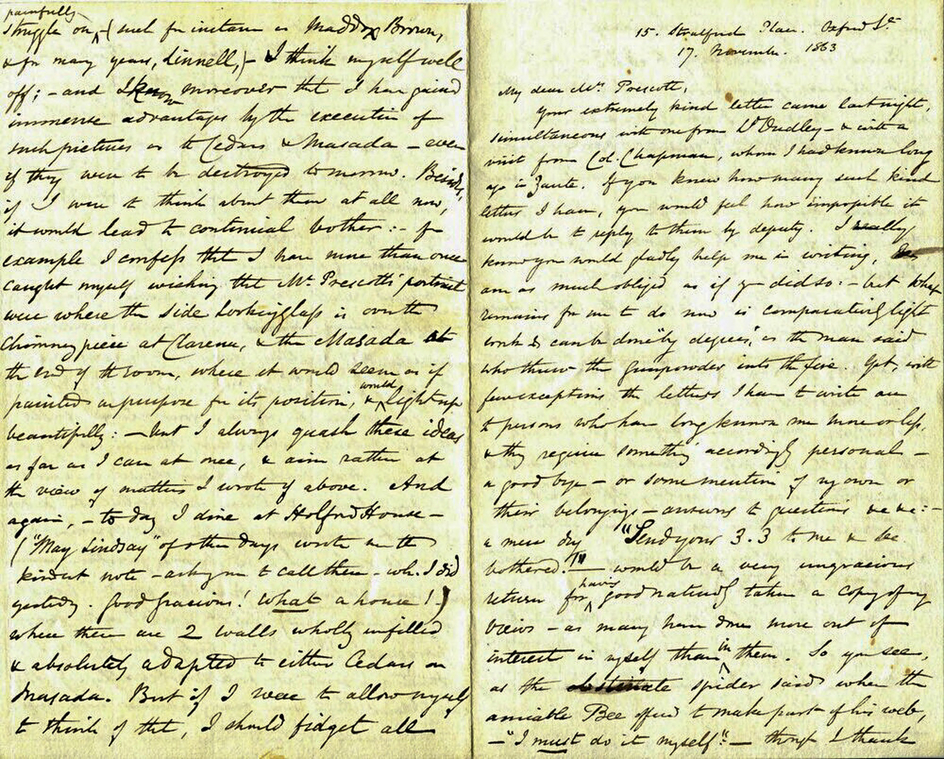 painfully
struggle on, - (such for instance as Maddox Brown,
& for many years, Linnell,) - I think myself well
off; - and I know moreover that I have gained
immense advantages by the execution of
such pictures as the Cedars & Masada - even
if they were to be destroyed tomorrow. Besides,
if I were to think about them at all now,
it would lead to continual bother: - for
example I confess that I have more than once
caught myself wishing that Mr. Prescott's portrait
were where the side Lookingglass is over the
chimneypiece at Clarence, & the Masada at
the end of the room, where it would seem as if
painted on purpose for its position, & would light up
beautifully: - but I always quash these ideas
as far as I can at once, & aim rather at
the view of matters I wrote of above. And
again, - to day I dine at Holford House -
("May Lindsay" of other days wrote me the
kindest note - asking me to call there - wh. I did
yesterday. Good gracious! What a house!)
where there are 2 walls wholly unfilled
& absolutely adapted to either Cedars or
Masada. But if I were to allow myself
to think of that, I should fidget all
15. Stratford Place. Oxford St.
17. November. 1863
My dear Mrs. Prescott,
Your extremely kind letter came last night,
simultaneous with one from Dr. Dudley - & with a
visit from Col. Chapman, whom I had known long
ago in Zante. If you knew how many such kind
letters I have, you would feel how impossible it
would be to reply to them by deputy. I really
know you would gladly help me in writing,
am as much obliged as if you did so: - but what
remains for me to do now is comparatively light
work & can be done "by degrees," as the man said
who threw the gunpowder into the fire. Yet, with
few exceptions the letters I have to write are
to persons who have long known me more or less,
& they require something accordingly personal -
a good bye - or some mention of my own or
their belongings - answers to questions &c &c: -
a mere dry "Send your 3.3 to me & be
bothered!" - would be a very ungracious
return for having goodnaturedly taken a copy of my
views - as many have done more out of
interest in myself than in them. So you see,
as the obstinate spider said when the
amiable Bee offered to make part of his web,
- "I must do it myself": - though I thank